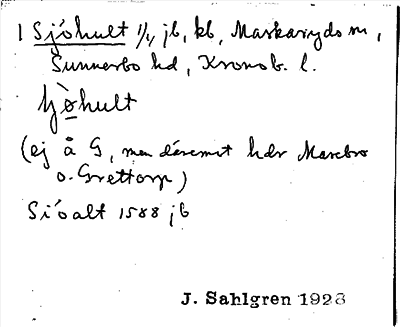 1 Sjöhult 1/4 jb, kb, Markaryds sn,
Sunnerbo hd, Kronob. l.
ʃɷ̀hult
(ej å G, men däremot hdr Marebro
o. Grettorp)
Sióalt 1588 jb
J. Sahlgren 1926